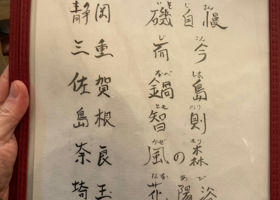 静岡 磯自慢
三重 而今
佐賀 鍋島
島根 智則
奈良 風の森
埼玉 花陽浴